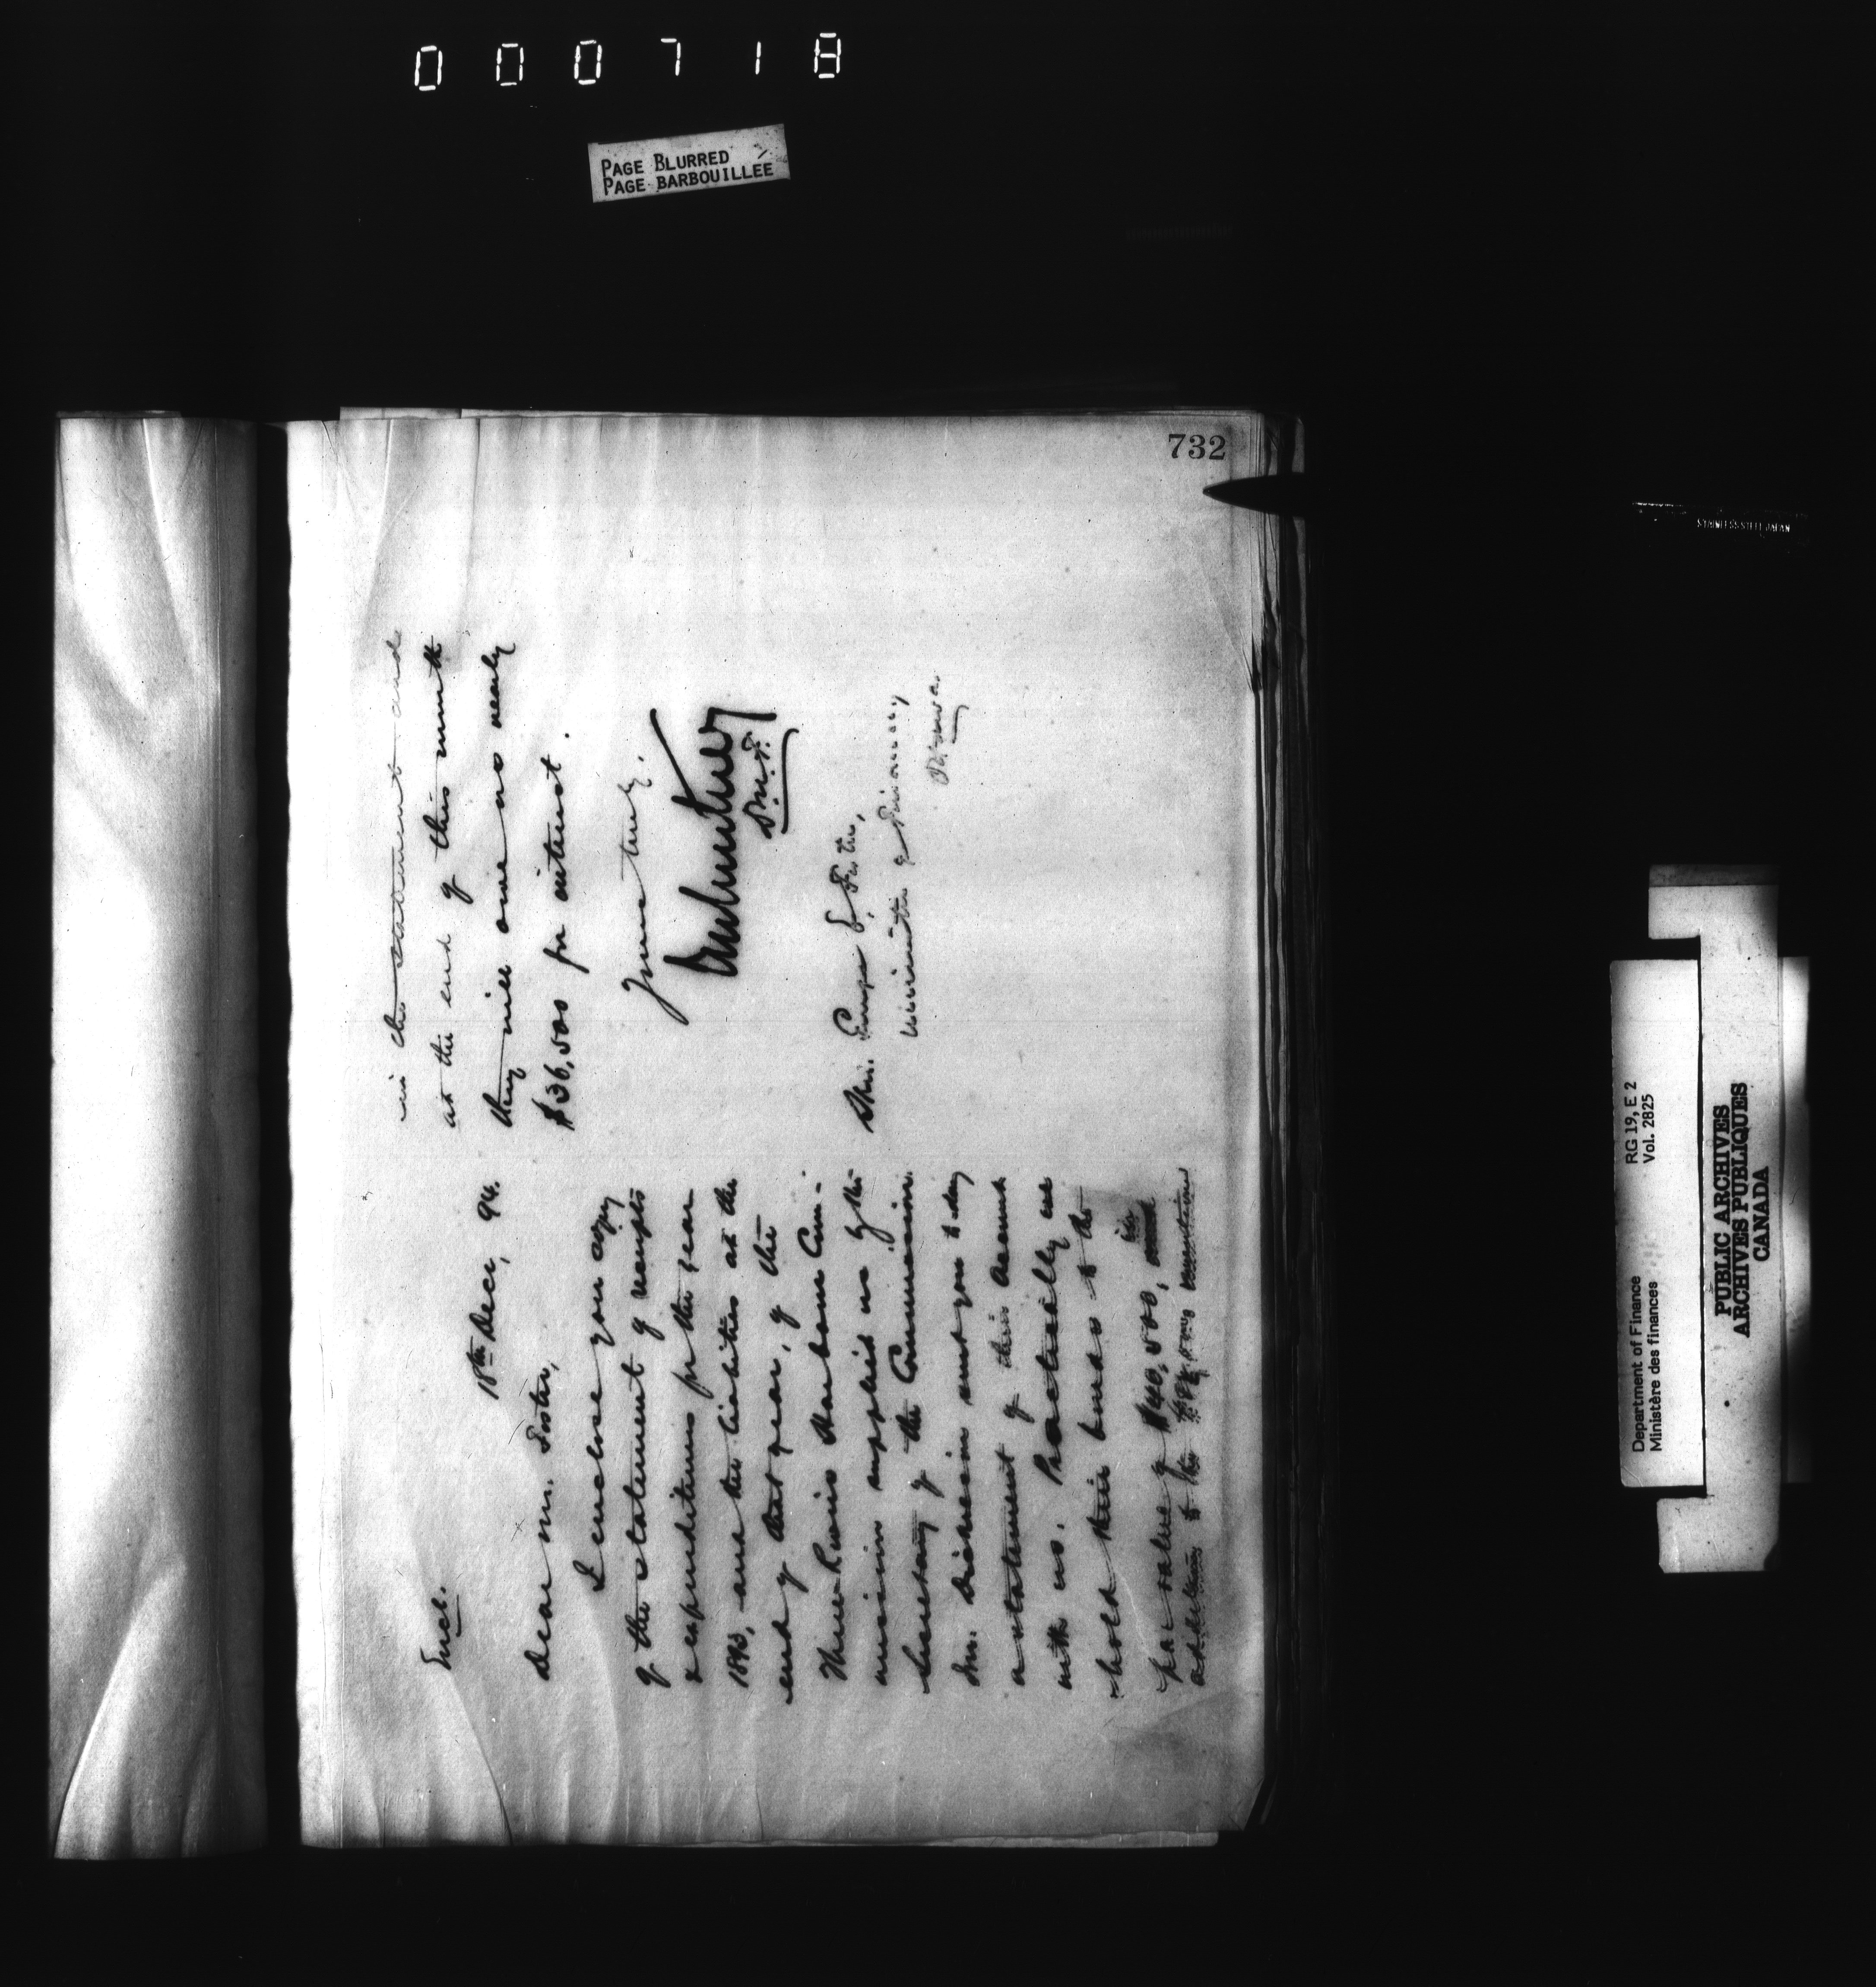 000718
PAGE BLURRED
PAGE BARBOUILLÉE
732
Encl.
18th Decr, 94.
Dear Mr. Foster,
I enclose you copy
of the statement of receipts
& expenditures for the year
1893, and the liabilities at the
end of that year, of the
Three Rivers Harbour Com-
mission supplied us by the
Secretary of the Commission.
Mr. Dickieson sent you to day
a statement of their account
with us. Practically we
hold their bonds to the
par value of $40,500, in
addition to the mentioned
in the statement and
at the end of this month
they will owe us nearly
$36,500 for interest.
Yours truly,
D.M.F.
Hon. George E. Foster,
Minister of Finance,
Ottawa.
STAINLESS STEEL JAPAN
Department of Finance
Ministère des finances
RG 19, E 2
Vol. 2825
PUBLIC ARCHIVES
ARCHIVES PUBLIQUES
CANADA